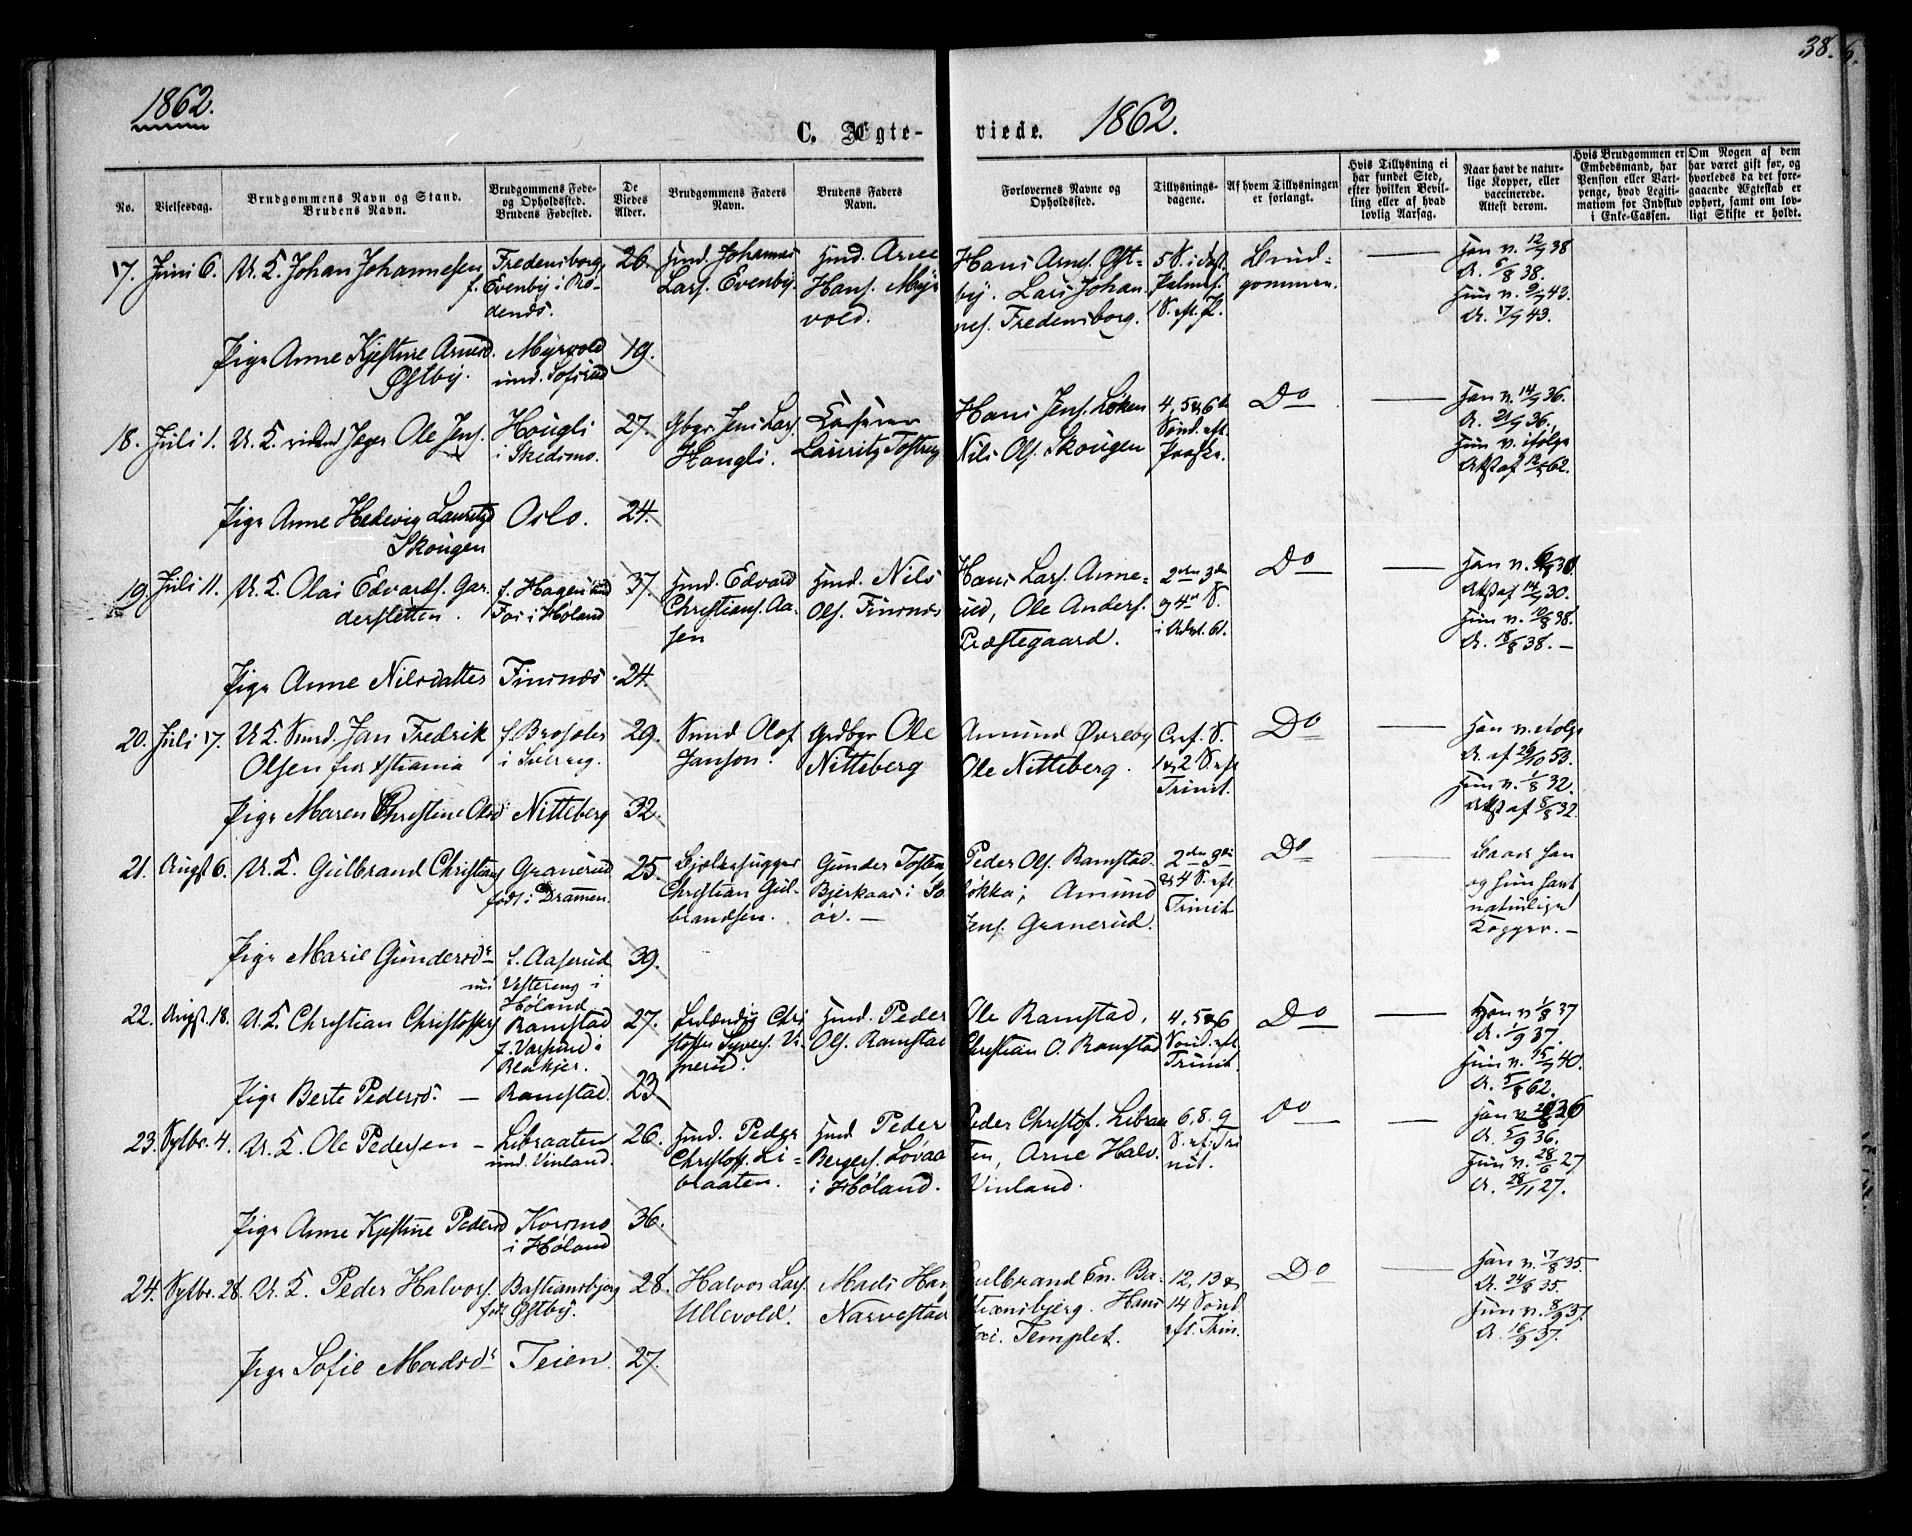 38.
1862.
C. Ægte-
viede. 1862.
No.
Vielsesdag.
Brudgommens Navn og Stand.
Brudens Navn.
Brudgommens Føde-
og Opholdssted.
Brudens Fødested.
De
Viedes
Alder.
Brudgommens Faders
Navn.
Brudens Faders
Navn.
Forlovernes Navne og
Opholdssted.
Tillysnings-
dagene.
Af hvem Tillysningen
er forlangt.
Hvis Tillysning ei
har fundet Sted,
efter hvilken Bevil-
ling eller af hvad
lovlig Aarsag.
Naar havt de natur-
lige Kopper, eller
vaccinerede.
Attest derom.
Hvis Brudgommen er
Embedsmand, har
Pension eller Vart-
penge, hvad Legiti-
mation for Indskud
i Enke-Cassen.
Om Nogen af dem
har været gift før, og
hvorledes da det fore-
gaaende Ægteskab er
ophørt, samt om lov-
ligt Skifte er holdt.
17. Juni 6. U. K. Johan Johannesen
Fredensborg
f. Evenby i Rø-
denes.
26.
Hmd. Johannes
Lars. Evenby.
Hmd. Arne
Hans. Myr
vold.
Hans Arnes. Øst-
by. Lars Johan
nes. Fredensborg.
5 S. i Fast.
Palmes.
1 S. eft. P.
Brud-
gommen.
Han v. 12/7 38
A. 6/8 38.
Hun v. 9/7 43.
A. 17/9 43.
Pige Anne Kjestine Arnesd.
Østby.
Myrvold
und. Sofirud
19.
18. Juli 1. U. K. ridend Jæger Ole Jens.
Hougli
i Skedsmo.
27.
Gbgr Jens Lars.
Hougli.
Lauritz Tostrup
Hans Jens. Løken
Nils Ols. Skougen
4, 5 & 6te
Sønd. eft.
Paaske.
Do
Han v. 14/9 36.
A. 21/9 36.
Hun v. ifølge
Att af 12/5 62.
Pige Anne Hedevig Lauritzd
Skougen
Oslo.
24.
19. Juli 11. U. K. Olai Edvards. Gar
dersletten.
f. Hagen und
Fos i Høland
37.
Hmd. Edvard
Christians. Aa-
sen
Hmd. Nils
Ols. Finsnæs
Hans Lars. Anne-
rud, Ole Anders.
Præstegaard.
2den 3die
og 4de S.
i Advt. 61.
Do
Han v. 30
Att af 14/9 30.
Hun v. 10/8 38.
A. 18/8 38. -
Pige Anne Nilsdatter
Finsnæs
24.
20. Juli 17. U. K. Smed. Jan Fredrik
Olsen fra Xtiania
29.
Smed Olof
Janson.
Grdbgr Ole
Nitteberg
Amund Øvreby
Ole Nitteberg.
Cref. S.
1 & 2 S. eft
Trinit.
Do
Han v. ifølge
A. af 29/10 53.
Hun v. 1/8 32.
Att af 8/8 32.
Pige Maren Christine Olsd
Nitteberg
32.
21. Augst 6. U. K. Gulbrand Christians
Granerud
født i Drammen.
25.
Bjelkehugger
Christian Gul-
brandsen.
Gunder Tosten
Bjerkaas i So
ør. -
Peder Ols. Ramstad
løkka; Amund
Jens. Granerud.
2den 3die
& 4 S. eft.
Trinit.
Do
Baade han
og hun havt
naturlige
Kopper. -
Pige Marie Gundersdr
f. Aaserud
Vestereng i
Høland
39.
22. Augst. 18. U. K. Christian Christoffers
Ramstad
f. Varpud i
Blakjer.
27.
Selvendig Chri
stoffer Syvers. Va
nerud.
Hmd. Peder
Ols. Ramstad
Ole Ramstad,
Christian O. Ramstad
4. 5 & 6
Sønd. eft.
Trinit.
Do
Han v 1/8 37
A. 1/9 37.
Hun v. 15/7 40.
A. 5/8 62.
Pige Berte Pedersd. -
Ramstad
23
23. Sptbr. 4. U. K. Ole Pedersen -
Libraaten
und. Vinland.
26.
Hmd. Peder
Christoff. Li-
braaten.
Hmd Peder
Bergers. Løvaa
i Høland.
Peder Christof. Libraa
ten, Arne Halv.
Vinland.
6. 8. 9
S. ef. Tri
nit.
Do
Han v. 36
A. 5/9 36.
Hun v. 28/6 27
A. 28/11 27.
Pige Anne Kjestine Pedersd
Korsmo
i Høland
36.
24. Sptbr. 28. U. K. Peder Halvors.
Bastiansbjerg
født Østby.
28.
Halvor Lars.
Ullevold.
Mads Han
Narvestad
Gulbrand En. Ba-
stiansbjerg. Hans
Templet.
12, 13 &
14 Sønd.
eft. Trin.
Do
Han v. 17/8 35.
A. 24/8 35.
Hun v. 8/9 37.
A. 16/9 37.
Pige Sofie Madsdr
Teien
27.